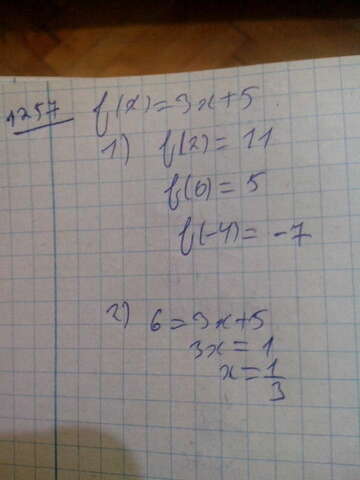 1257 f(x)=3x+5
1) f(2)=11
f(0)=5
f(-4)=-7
2) 6=3x+5
3x=1
x=1/3